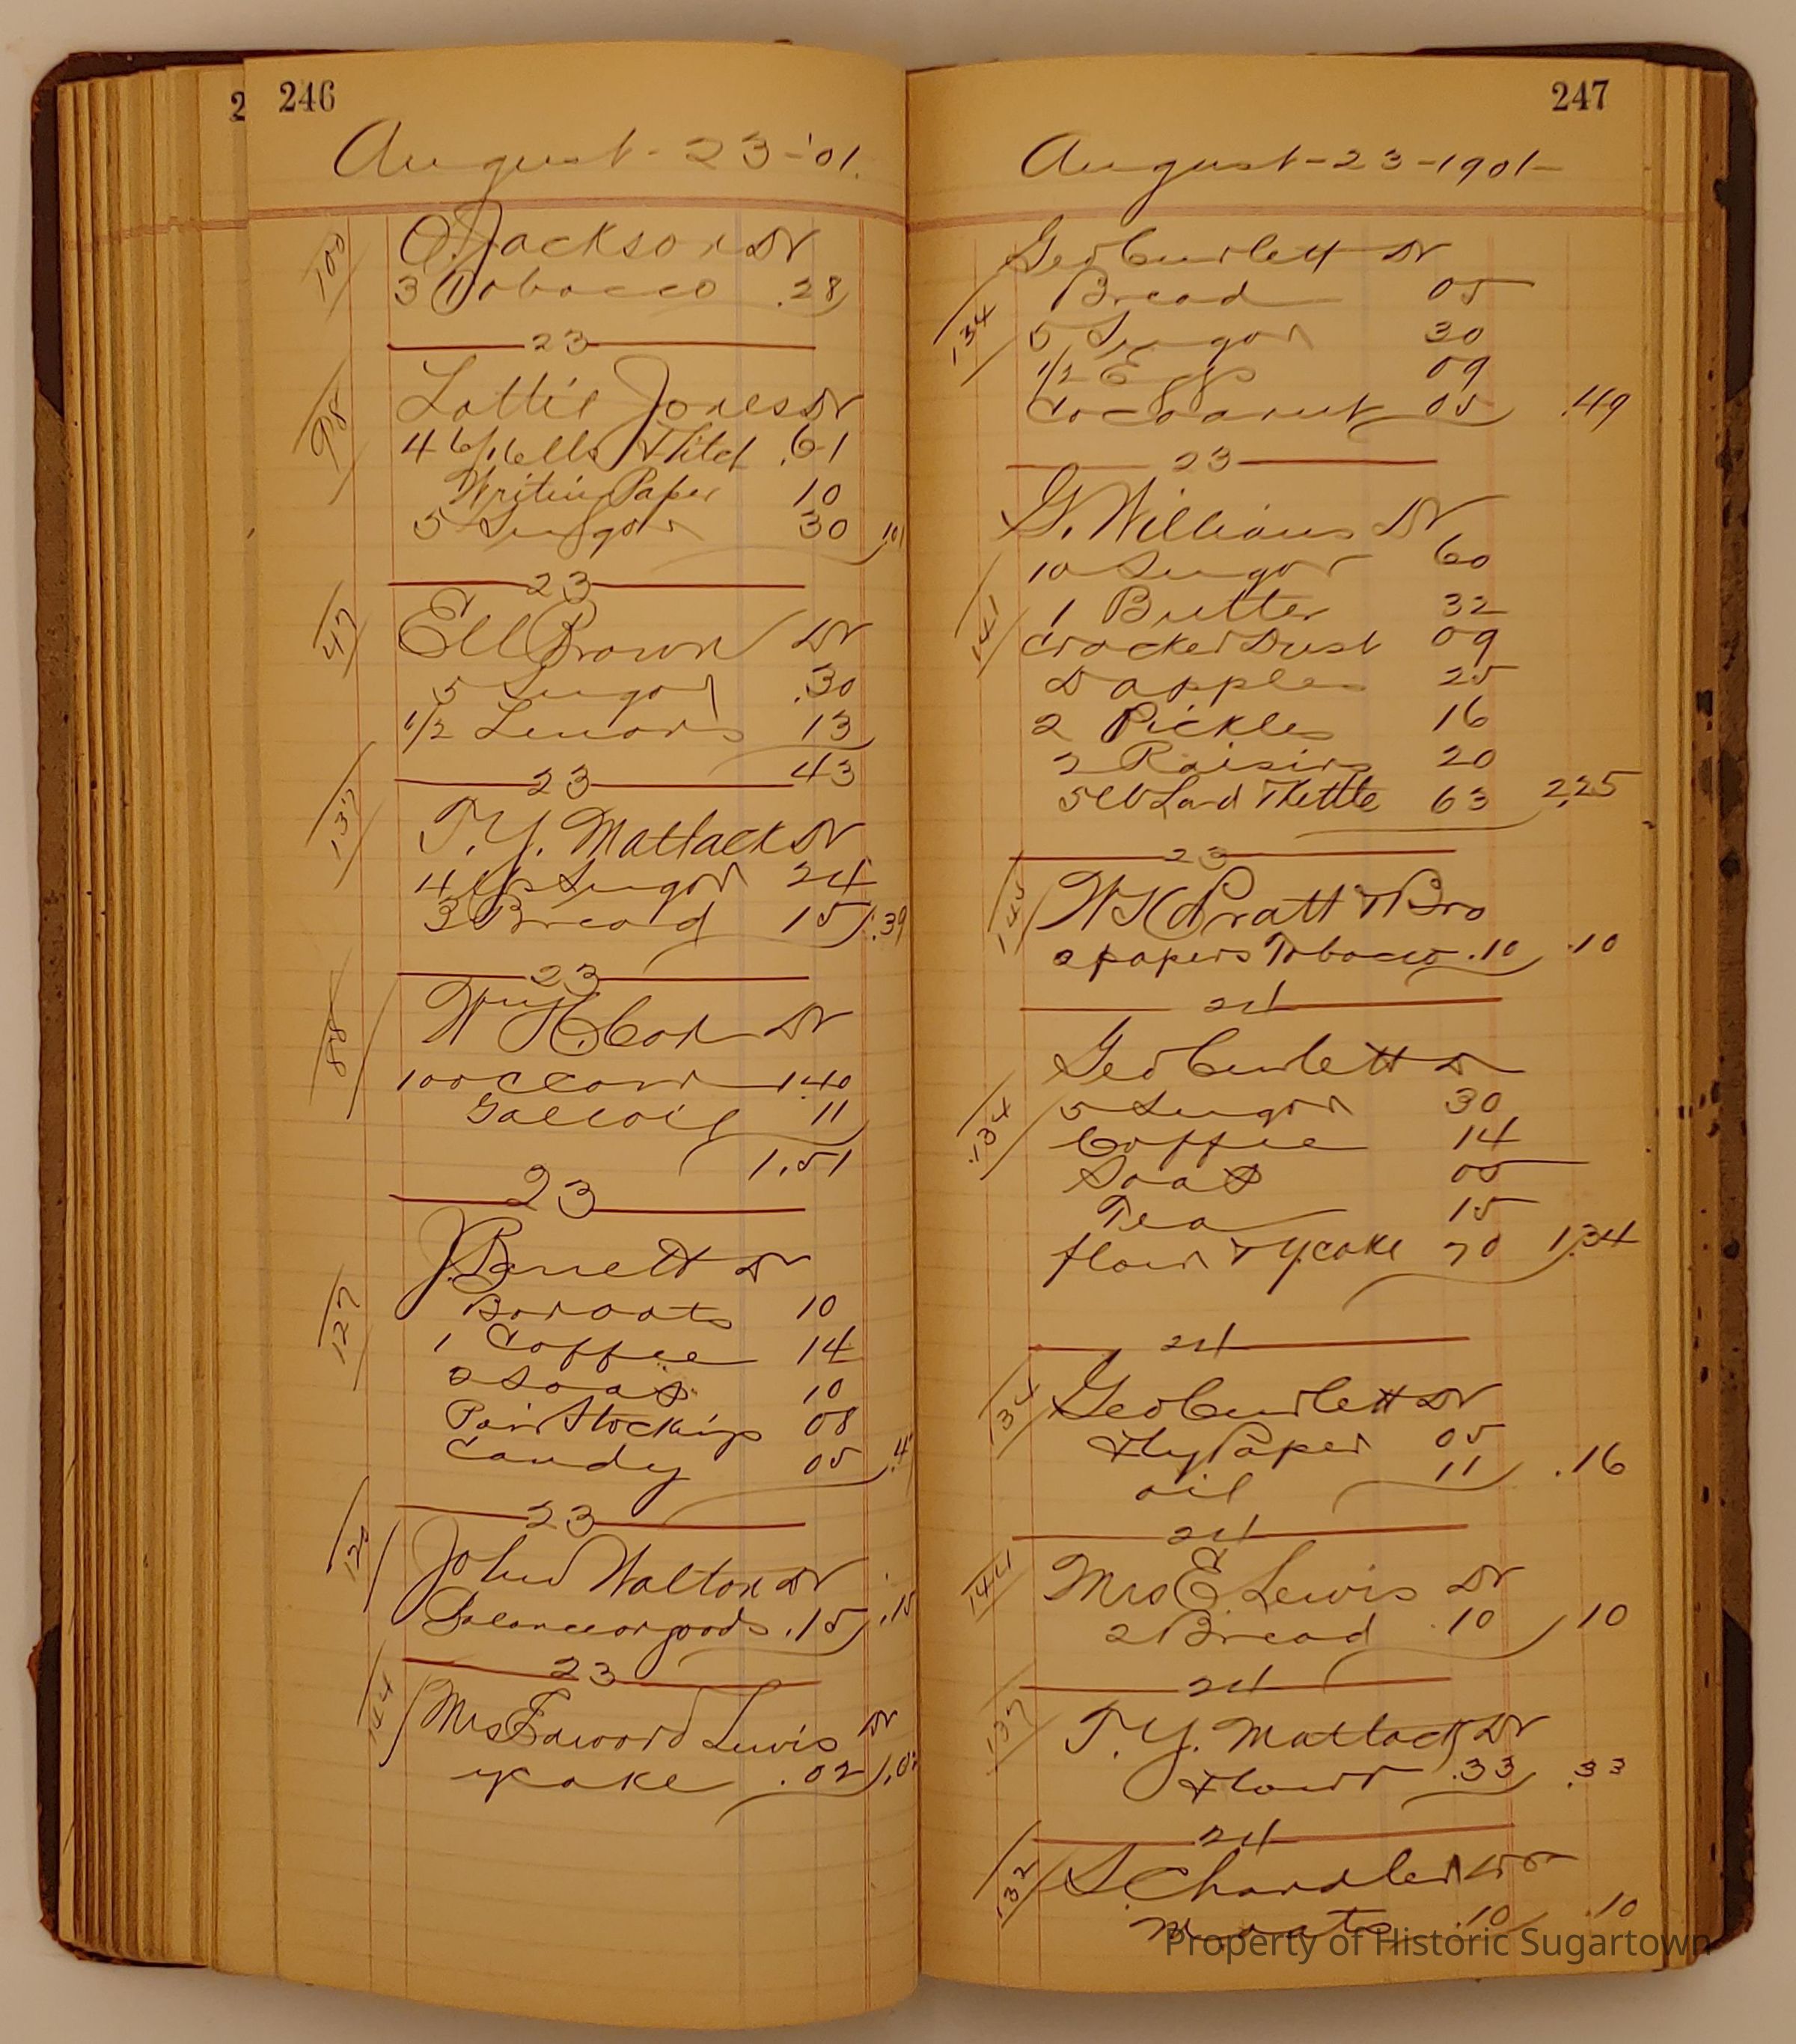 2 246
August - 23 - '01.
100
O. Jackson Dr
3 Tobacco .28
23
98
Lottie Jones Dr
4 .61
Writing Paper 10
5 Sugar 30 101
23
47
Ell Brown Dr
5 Sugar .30
1/2 Lemons 13
43
23
137
T. Y. Matlack Dr
4 lb Sugar 24
3 Bread 15 .39
23
88
Wm H. Cox Dr
100 Clover 1.40
Gal oil 11
1.51
23
127
J. Bennett Dr
10
1 Coffee 14
2 Soap 10
Pair Stockings 08
Candy 05 .4
23
John Walton Dr
Balance on goods .15 .15
23
144
Mrs Edward Lewis Dr
Y Cake .02 .02
247
August - 23 - 1901 -
134
Geo Curlett Dr
Bread 05
5 Sugar 30
1/2 Eggs 09
Cocoanut 05 .49
23
141
G. Williams Dr
10 Sugar 60
1 Butter 32
Cracker Dust 09
D apples 25
2 Pickles 16
2 Raisins 20
5 lb Lard & Kettle 63 2.25
23
145
W H Pratt & Bro
2 papers Tobacco .10 .10
24
134
Geo Curlett Dr
5 Sugar 30
Coffee 14
Soap 05
Tea 15
flour & Y. Cake 70 1.34
24
134
Geo Curlett Dr
Fly Paper 05
oil 11 .16
24
144
Mrs E. Lewis Dr
2 Bread .10 10
24
137
T. Y. Matlack Dr
Flour .33 .33
24
132
S. Chandler Dr
.10 .10
Property of Historic Sugartown